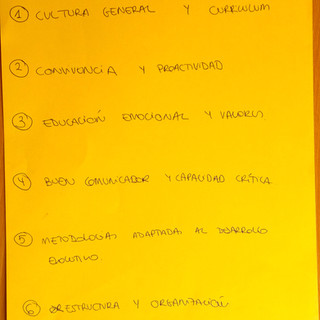 ① CULTURA GENERAL Y CURRICULUM
② CONVIVENCIA Y PROACTIVIDAD
③ EDUCACIÓN EMOCIONAL Y VALORES.
④ BUEN COMUNICADOR Y CAPACIDAD CRÍTICA.
⑤ METODOLOGIAS ADAPTADAS AL DESARROLLO
EVOLUTIVO.
⑥ ESTRUCTURA Y ORGANIZACIÓN